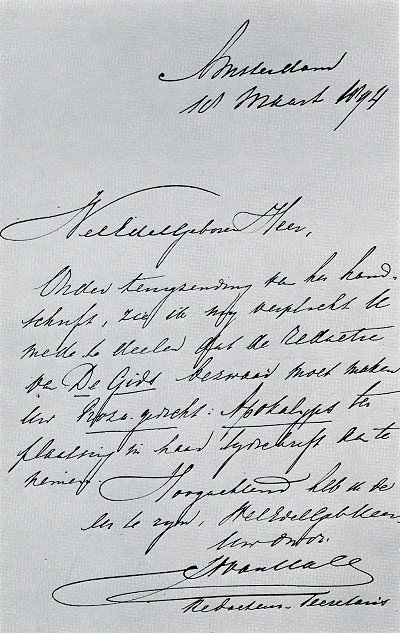 Amsterdam
10 Maart 1894
WelEdelGeboren Heer,
Onder terugzending van het hand-
schrift, zie ik mij verplicht U
mede te deelen dat de redactie
van De Gids bezwaar moet maken
Uw Proza-gedicht: Apokalyps ter
plaatsing in haar tijdschrift aan te
nemen.
Hoogachtend heb ik de
eer te zijn, WelEdelGeb Heer,
Uw dv. dr.
JN van Hall
Redacteur-Secretaris